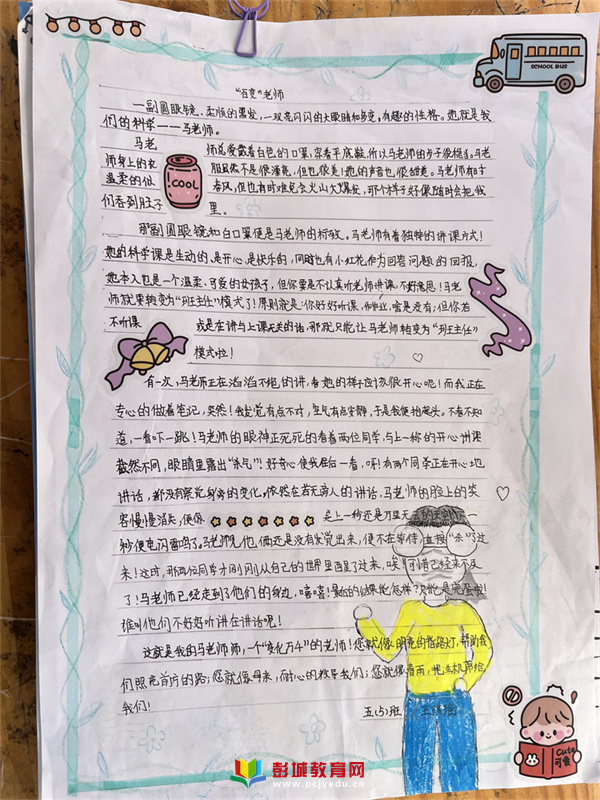 SCHOOL BUS
"百变"老师
一副圆眼镜,柔顺的黑发,一双亮闪闪的大眼睛和多变,有趣的性格。她就是我
们的科学——马老师。
马老师总爱戴着白色的口罩,穿着平底鞋,所以马老师的步子很稳当。马老
师身上的衣服虽然不是很漂亮,但也很美!她的声音也很甜美。马老师有时
温柔的似春风,但也有时难免会火山大爆发,那个样子好像随时会把我
们吞到肚子里。
COOL
那副圆眼镜和白口罩便是马老师的标致。马老师有着独特的讲课方式!
她的科学课是生动的,是开心,是快乐的,同时也有小红花作为回答问题的回报,
她本人也是一个温柔、可爱的女孩子,但你要是不认真听老师讲课,不好意思!马老
师就要转变为"班主任"模式了!原则就是:你好好听课,啥是没有;但你若
不听课 或是在讲与上课无关的话,那就只能让马老师转变为"班主任"
模式啦!
有一次,马老师正在滔滔不绝的讲,看她的样子应该很开心呢!而我正在
专心的做着笔记,突然!我发觉有点不对,空气有点安静,于是我便抬起头。不看不知
道,一看吓一跳!马老师的眼神正死死的看着两位同学,与上一秒的开心
截然不同,眼睛里露出"杀气"!好奇心使我往后一看,呀!有两个同学正在开心地
讲话,都没有察觉身旁的变化,依然在若无旁人的讲话,马老师的脸上的笑
容慢慢消失,便像 是上一秒还是万里无云的天空下一
秒便电闪雷鸣了,马老师见他俩还是没有发觉出来,便不在等待,直接"杀"了过
来!这时,那两位同学才刚刚从自己的世界里回了过来,唉!可惜已经来不及
了!马老师已经走到了他们的身边,嘻嘻!最后的结果能怎样?只能是完蛋啦!
谁叫他们不好好听讲在讲话呢!
这就是我的马老师,一个"变化万千"的老师!您就像明亮的指路灯,帮助我
们照亮前方的路;您就像母亲,耐心的教导我们;您就像
我们!
五(5)班
Cute
可爱
彭城教育网
www.pcjyedu.cn